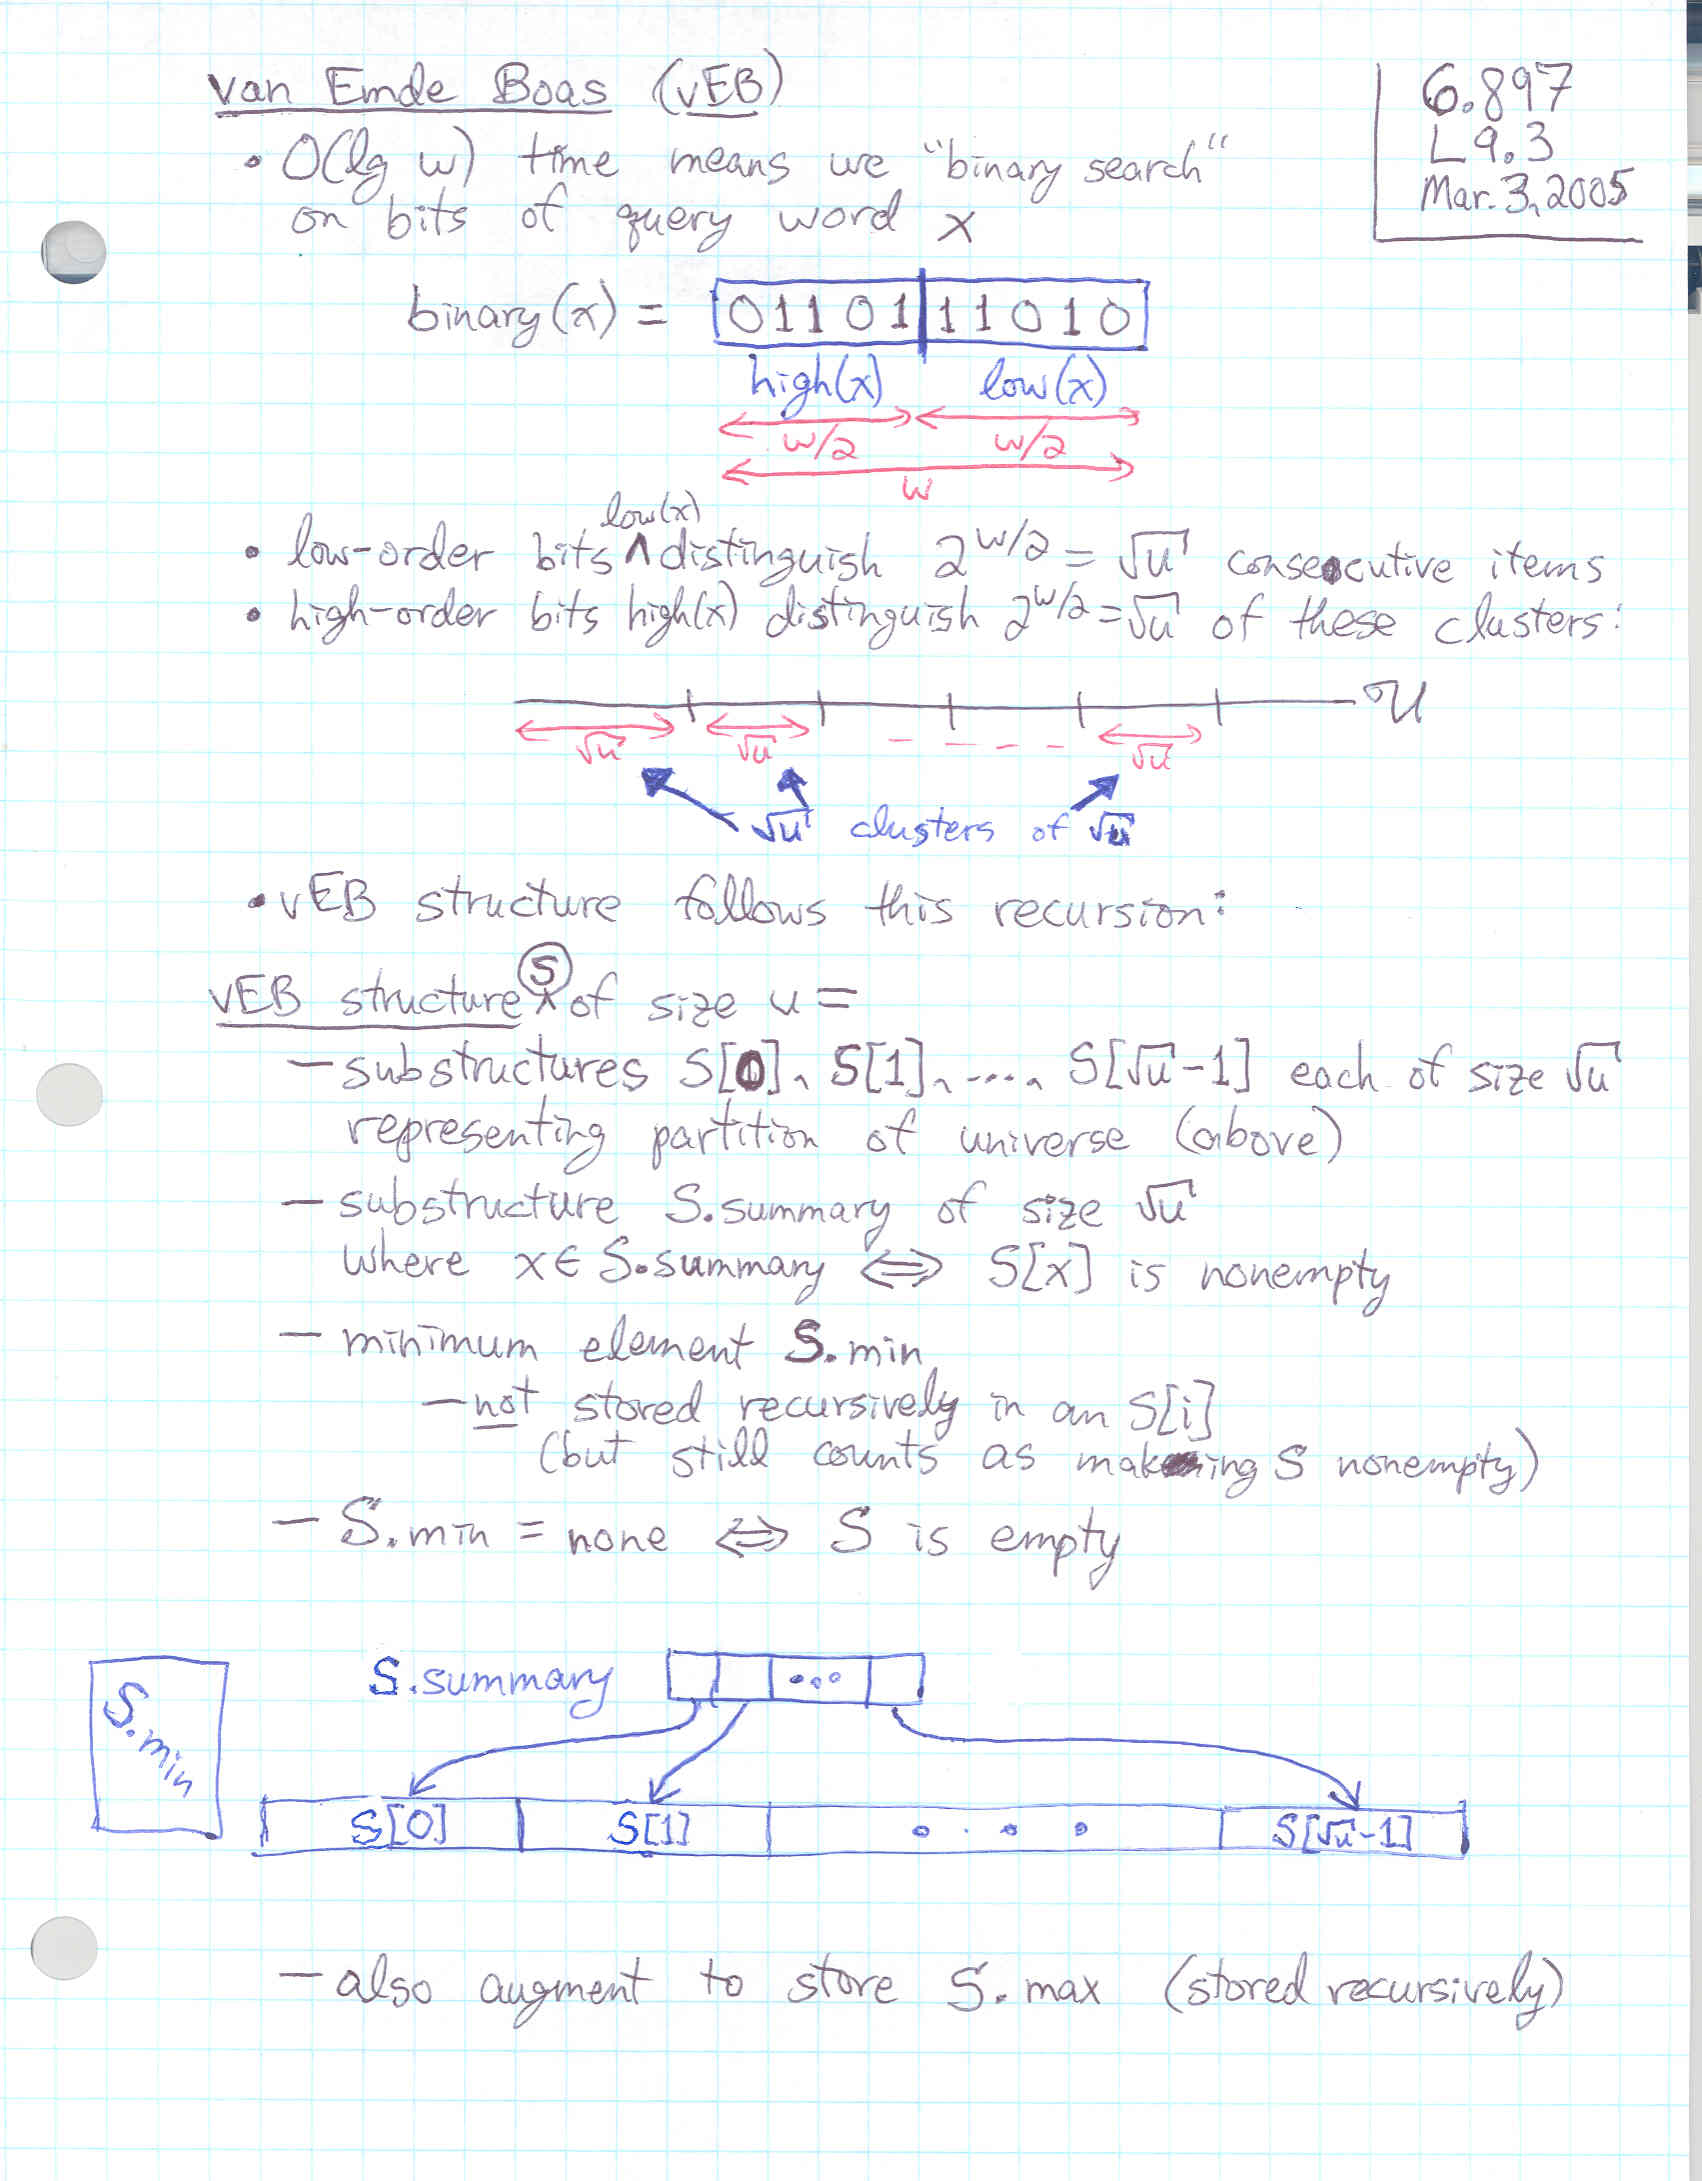 6.897
L9.3
Mar. 3, 2005
van Emde Boas (vEB)
• O(lg w) time means we "binary search"
on bits of query word x
binary(x) = 01101 11010
high(x) low(x)
w/2 w/2
w
• low-order bits low(x) distinguish 2^{w/2} = √u consecutive items
• high-order bits high(x) distinguish 2^{w/2} = √u of these clusters:
U
√u √u - - - - √u
√u clusters of √u
• vEB structure follows this recursion:
vEB structure S of size u =
— substructures S[0], S[1], ...., S[√u-1] each of size √u
representing partition of universe (above)
— substructure S.summary of size √u
where x ∈ S.summary ⇔ S[x] is nonempty
— minimum element S.min
— not stored recursively in an S[i]
(but still counts as making S nonempty)
— S.min = none ⇔ S is empty
S.min
S.summary ...
S[0] S[1] . . . S[√u-1]
— also augment to store S.max (stored recursively)